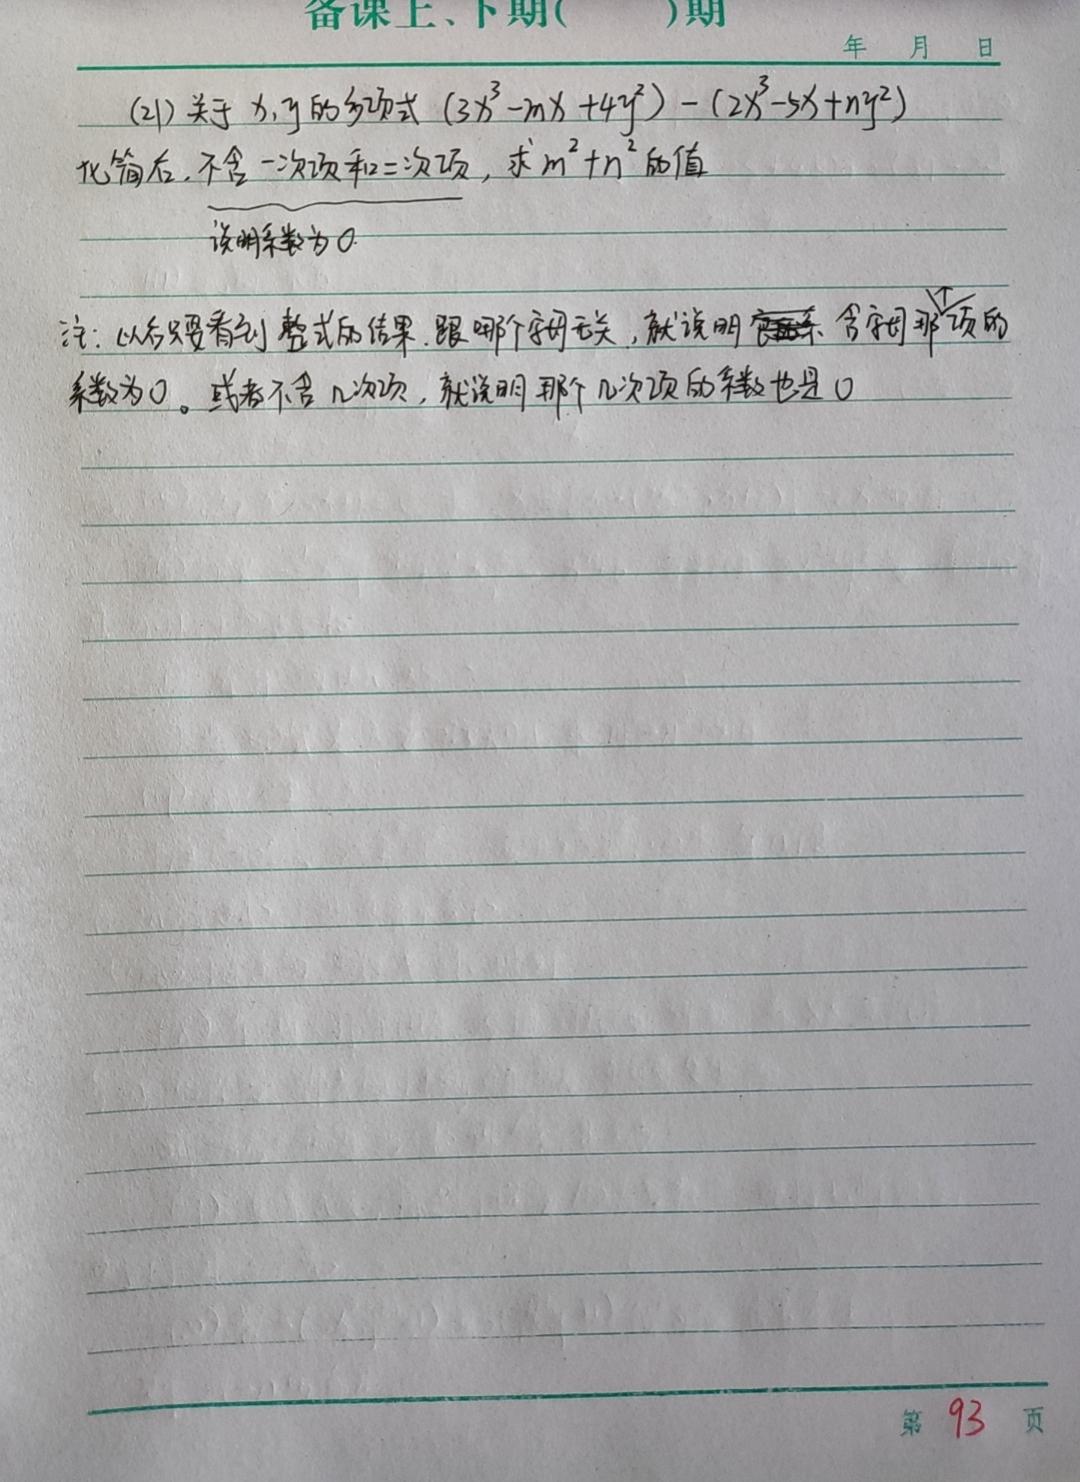 备课上、下期( )期
年 月 日
(21) 关于 x,y 的多项式 (3x³-mx+4y²)-(2x³-5x+ny²)
化简后,不含一次项和二次项,求 m²+n² 的值
说明系数为0.
注:以后只要看到整式的结果.跟哪个字母无关,就说明 含字母那项的
系数为0。或者不含几次项,就说明那个几次项的系数也是0
第 93 页